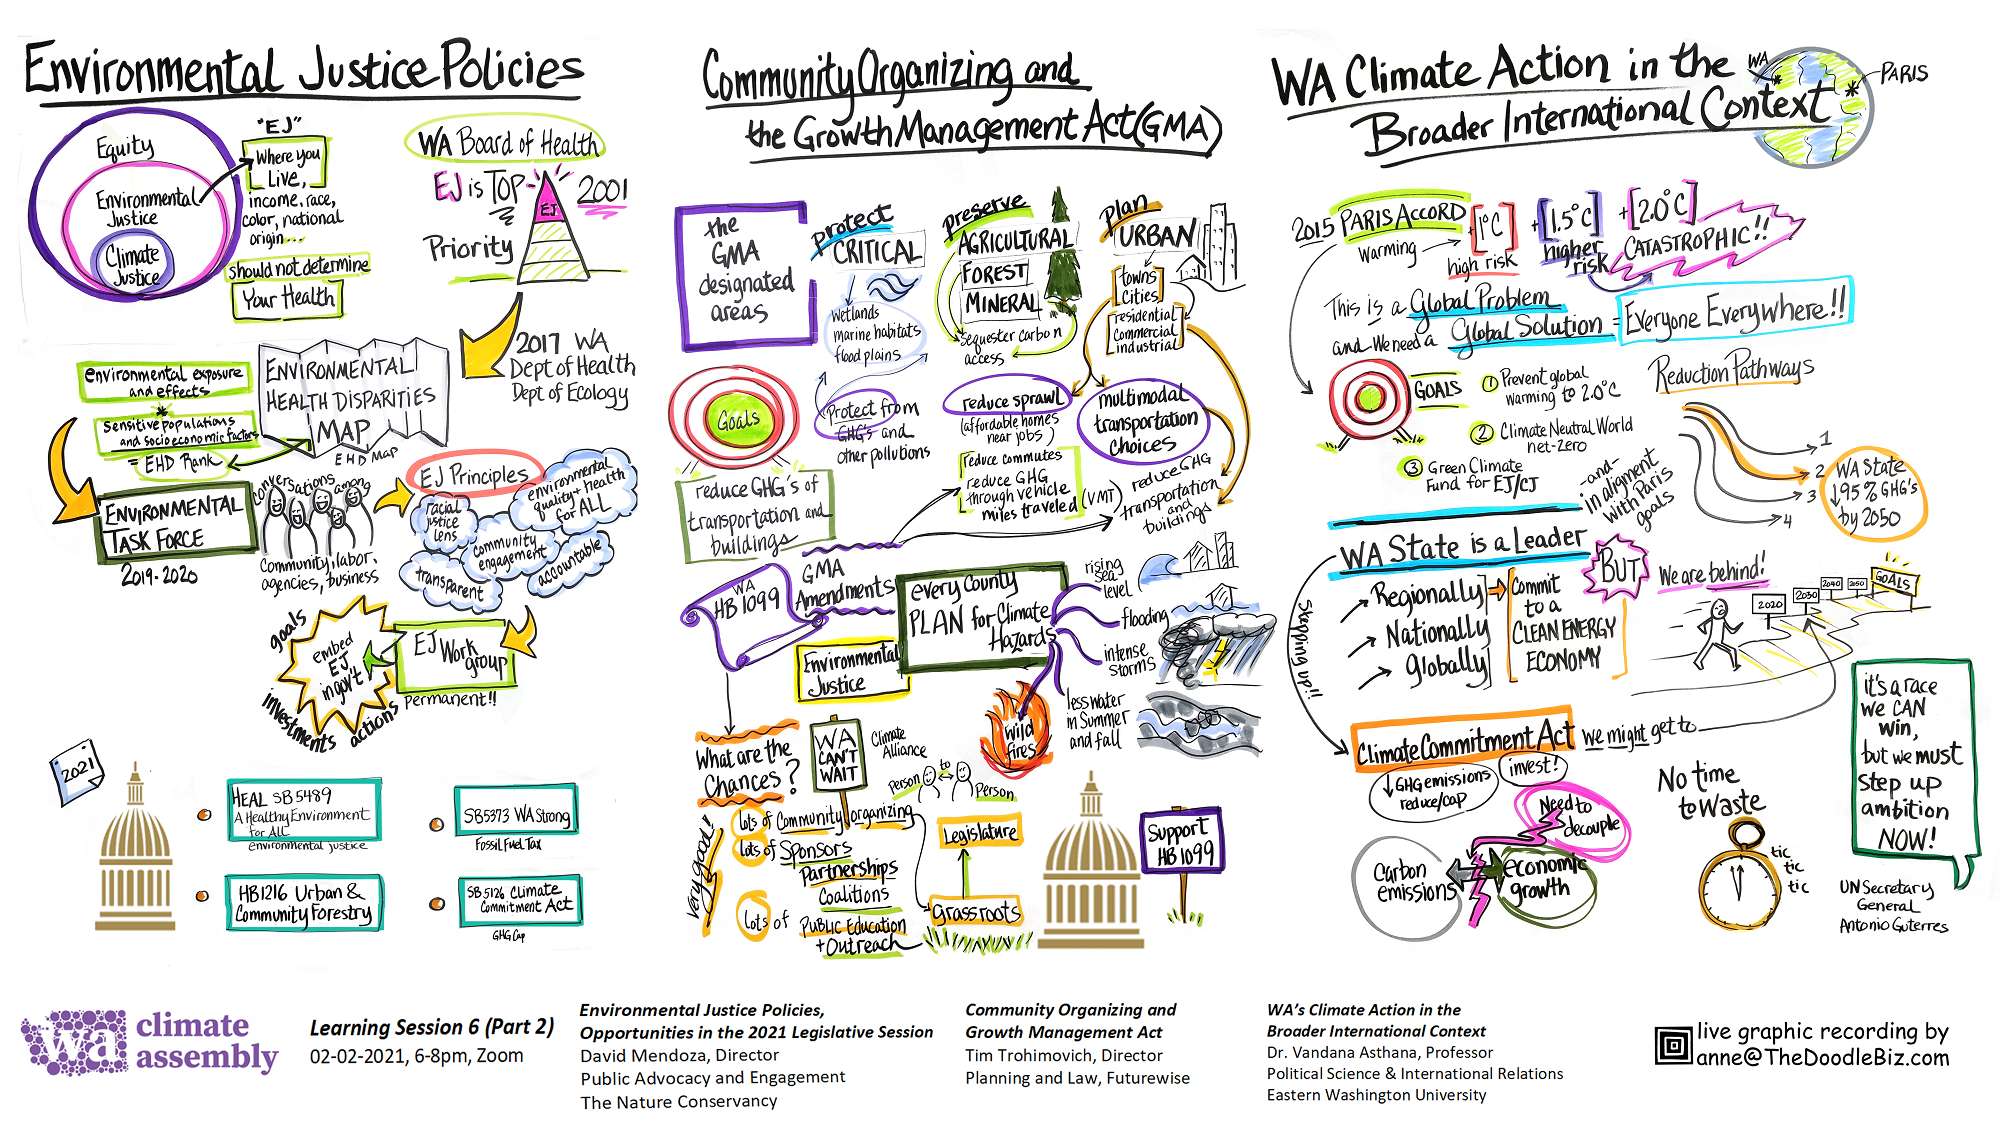 Environmental Justice Policies
Equity
Environmental
Justice
Climate
Justice
"EJ"
Where you
Live,
income, race,
color, national
origin....
should not determine
Your Health
WA Board of Health
EJ is TOP
Priority
EJ
2001
2017 WA
Dept of Health
Dept of Ecology
environmental exposure
and effects
*
Sensitive populations
and socioeconomic factors
= EHD Rank
ENVIRONMENTAL
HEALTH DISPARITIES
MAP
EHD MAP
ENVIRONMENTAL
TASK FORCE
2019-2020
conversations among
Community, labor,
agencies, business
EJ Principles
racial
justice
lens
environmental
quality + health
for ALL
community
engagement
transparent
accountable
EJ Work
group
Permanent!!
embed
EJ
in gov't
goals
investments
actions
2021
HEAL SB5489
A Healthy Environment
for ALL
environmental justice
SB5373 WA Strong
Fossil Fuel Tax
HB1216 Urban &
Community Forestry
SB5126 Climate
Commitment Act
GHG Cap
Community Organizing and
the Growth Management Act (GMA)
the
GMA
designated
areas
protect
CRITICAL
wetlands
marine habitats
flood plains
Protect from
GHG's and
other pollutions
preserve
AGRICULTURAL
FOREST
MINERAL
sequester carbon
access
plan
URBAN
towns
Cities
residential
commercial
industrial
Goals
reduce GHG's of
transportation and
buildings
reduce sprawl
(affordable homes
near jobs)
reduce commutes
reduce GHG
through vehicle
miles traveled (VMT)
multimodal
transportation
choices
reduce GHG
transportation
and
buildings
WA
HB 1099
GMA
Amendments
Environmental
Justice
every County
PLAN for Climate
Hazards
rising
sea
level
flooding
intense
storms
less water
in Summer
and fall
wild
fires
What are the
Chances?
WA
CAN'T
WAIT
Climate
Alliance
Person to Person
very good!
lots of Community organizing
lots of Sponsors
Partnerships
Coalitions
lots of PUBLIC EDUCATION
+ OUTREACH
Legislature
Grassroots
Support
HB1099
WA Climate Action in the
Broader International Context
WA
PARIS
2015 PARIS ACCORD
warming
+[1°C]
high risk
+[1.5°C]
higher
risk
+[2.0°C]
CATASTROPHIC!!
This is a Global Problem
and We need a Global Solution = Everyone Everywhere!!
GOALS
1 Prevent global
warming to 2.0°C
2 Climate Neutral World
net-zero
3 Green Climate
Fund for EJ/CJ
Reduction Pathways
1
2
3
4
WA State
↓95% GHG's
by 2050
-and-
in alignment
with Paris
goals
WA State is a Leader
Regionally
Nationally
Globally
Commit
to a
CLEAN ENERGY
ECONOMY
BUT
We are behind!
2020
2030
2040
2050
GOALS
Stepping up!!
Climate Commitment Act
we might get to
↓GHG emissions
reduce/cap
invest!
Need to
decouple
Carbon
emissions
economic
growth
No time
to Waste
tic
tic
tic
it's a race
we CAN
win,
but we must
step up
ambition
NOW!
UN Secretary
General
Antonio Guterres
wa
climate
assembly
Learning Session 6 (Part 2)
02-02-2021, 6-8pm, Zoom
Environmental Justice Policies,
Opportunities in the 2021 Legislative Session
David Mendoza, Director
Public Advocacy and Engagement
The Nature Conservancy
Community Organizing and
Growth Management Act
Tim Trohimovich, Director
Planning and Law, Futurewise
WA's Climate Action in the
Broader International Context
Dr. Vandana Asthana, Professor
Political Science & International Relations
Eastern Washington University
live graphic recording by
anne@TheDoodleBiz.com